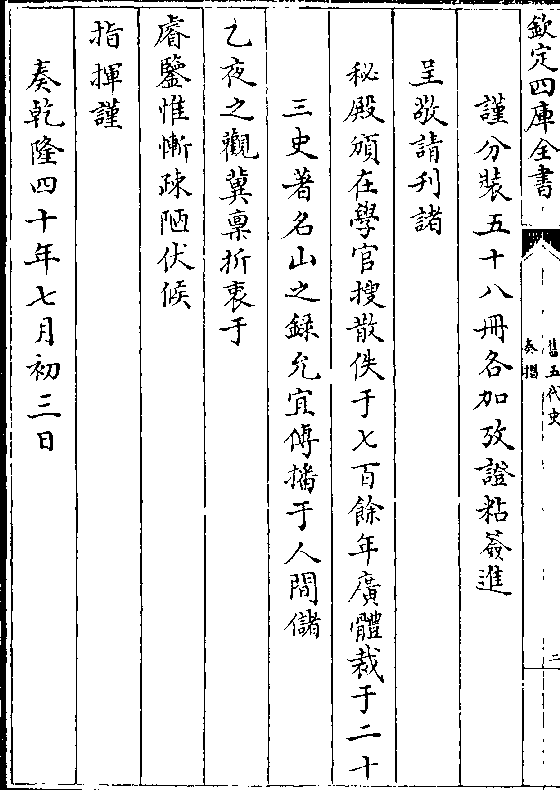 欽定四庫全書
舊五代史
奏摺
二
謹分裝五十八冊各加攷證粘簽進
呈敬請刊諸
秘殿頒在學官搜散佚于七百餘年廣體裁于二十
三史著名山之錄允宜傳播于人間儲
乙夜之觀冀稟折衷于
睿鑒惟慚疎陋伏候
指揮謹
奏乾隆四十年七月初三日